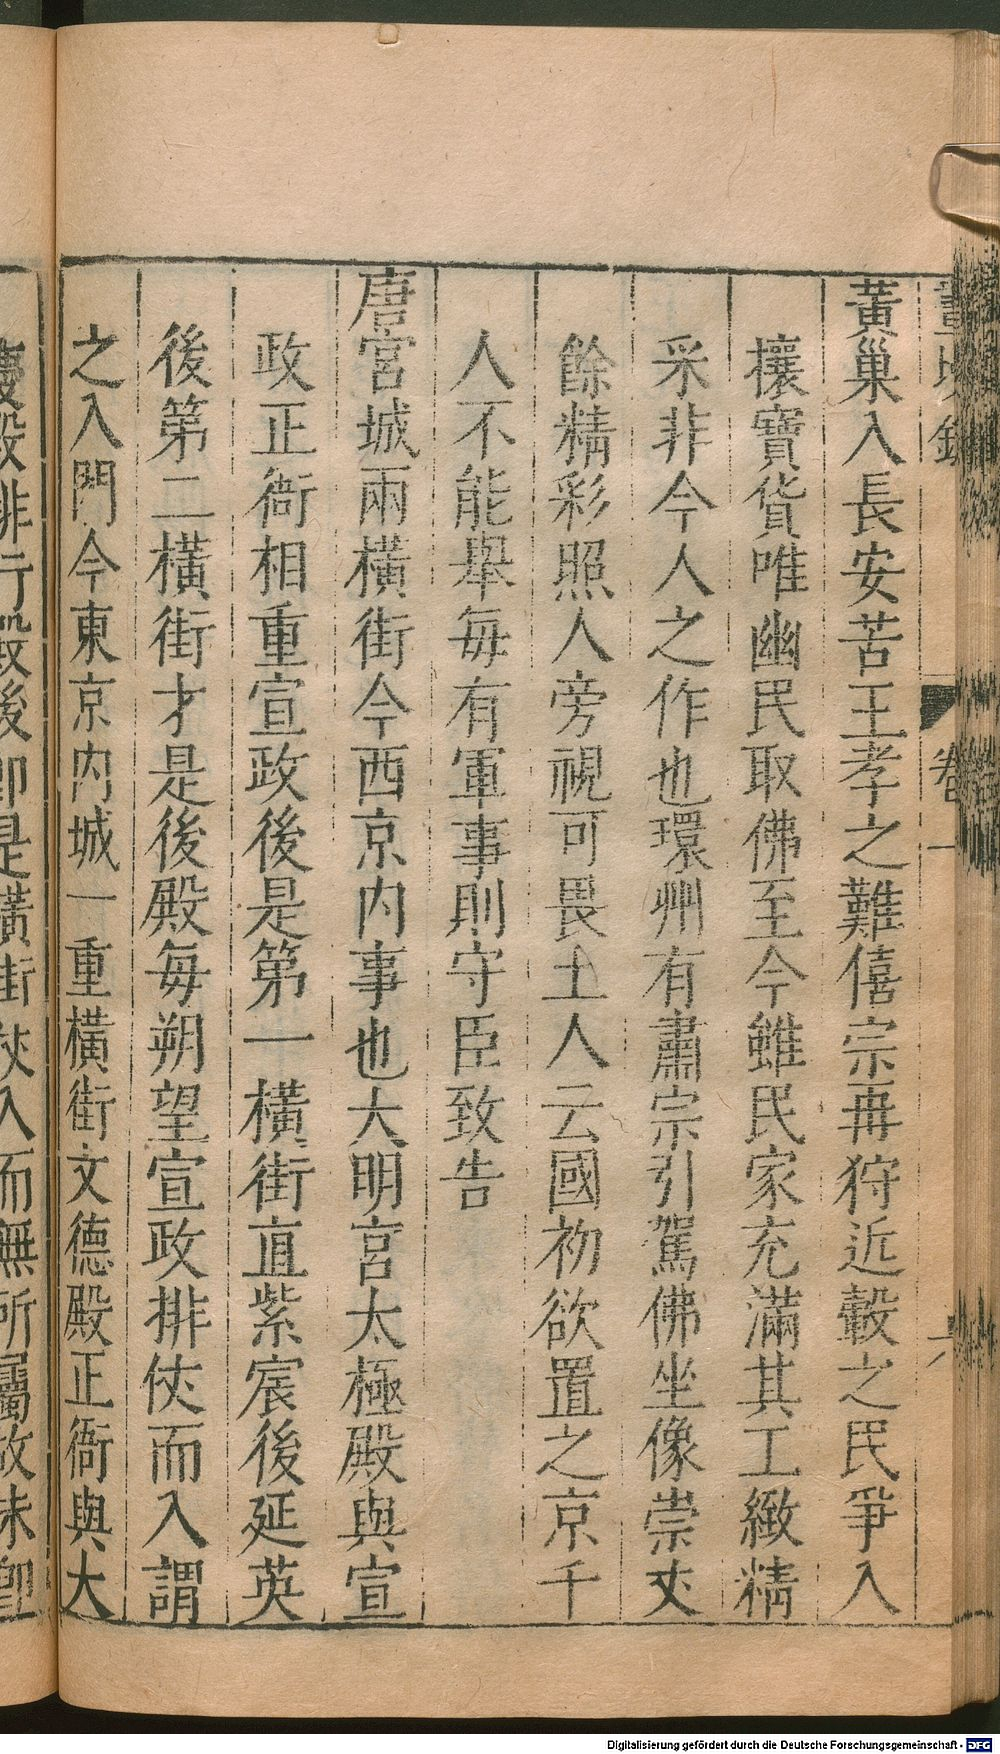 卷一
六
黃巢入長安苦王孝之難僖宗再狩近轂之民爭入
攘寶貨唯幽民取佛至今雖民家充滿其工緻精
采非今人之作也環州有肅宗引駕佛坐像崇丈
餘精彩照人旁視可畏土人云國初欲置之京千
人不能舉每有軍事則守臣致告
唐宮城兩橫街今西京內事也大明宮太極殿與宣
政正衙相重宣政後是第一橫街直紫宸後延英
後第二橫街才是後殿每朔望宣政排仗而入謂
之入閤今東京內城一重橫街文德殿正衙與大
慶殿排行殿後即是橫街仗入而無所屬故未
Digitalisierung gefördert durch die Deutsche Forschungsgemeinschaft - DFG